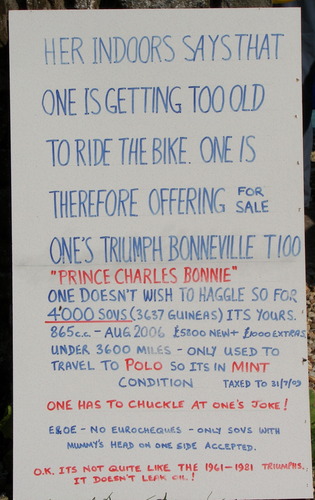 HER INDOORS SAYS THAT
ONE IS GETTING TOO OLD
TO RIDE THE BIKE. ONE IS
THEREFORE OFFERING FOR SALE
ONE'S TRIUMPH BONNEVILLE T100
"PRINCE CHARLES BONNIE"
ONE DOESN'T WISH TO HAGGLE SO FOR
4'000 SOVS (3637 GUINEAS) ITS YOURS.
865c.c. - AUG 2006 £5800 NEW + £1000 EXTRAS,
UNDER 3600 MILES - ONLY USED TO
TRAVEL TO POLO SO ITS IN MINT
CONDITION TAXED TO 31/7/09
ONE HAS TO CHUCKLE AT ONE'S JOKE!
E&OE - NO EUROCHEQUES - ONLY SOVS WITH
MUMMY'S HEAD ON ONE SIDE ACCEPTED.
O.K. ITS NOT QUITE LIKE THE 1961-1981 TRIUMPHS.
IT DOESN'T LEAK OIL!